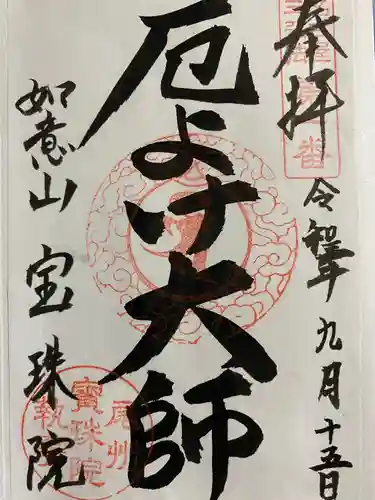 奉拝
令和年九月十五日
厄よけ大師
如意山 宝珠院
番
尾州
寶珠院
執